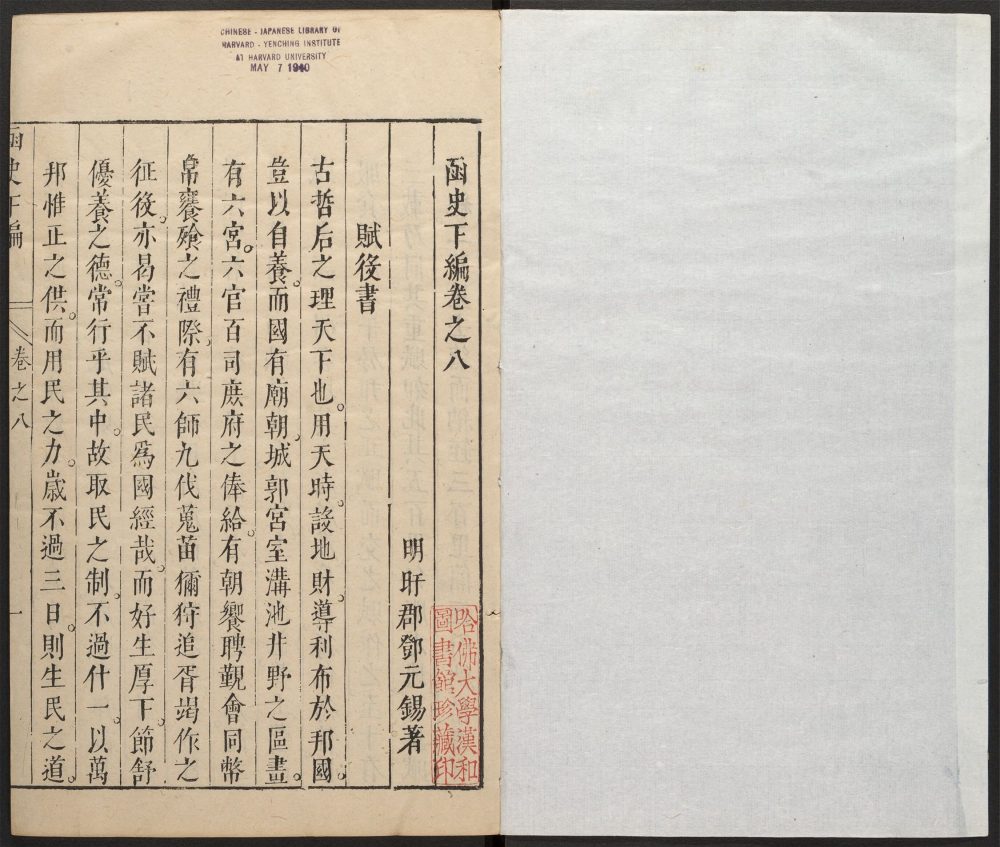 CHINESE - JAPANESE LIBRARY OF
HARVARD - YENCHING INSTITUTE
AT HARVARD UNIVERSITY
MAY 7 1940
函史下編卷之八
明旴郡鄧元錫著
哈佛大學漢和
圖書館珍藏印
賦役書
古哲后之理天下也。用天時。設地財。導利布於邦國。
豈以自養。而國有廟朝。城郭宮室溝池井野之區畫。
有六宮。六官百司庶府之俸給。有朝饗聘覲會同幣
帛饔飧之禮際。有六師九伐蒐苗獮狩追胥竭作之
征役。亦曷嘗不賦諸民爲國經哉。而好生厚下。節舒
優養之德。常行乎其中。故取民之制。不過什一。以萬
邦惟正之供。而用民之力。歲不過三日。則生民之道。
函史下編
卷之八
一